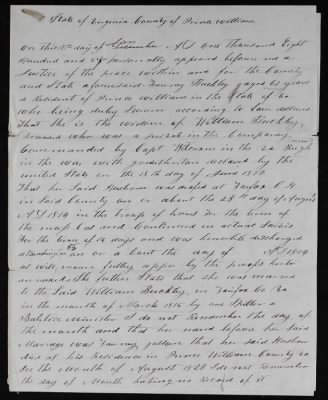 State of Virginia County of Prince William
On this day of A D One thousand Eight
Hundred and personally appeared before me a
Justice of the peace within and for the County
and State aforesaid Fanney aged 61 years
a Resident of Prince William in the State of Va
who being duly Sworn according to Law declares
That She is the widow of William
Deceased who was a private in the Company
Commanded by Capt in the Va
in the war with great britain declared by the
united States on the 18th day of June 1812
That her Said Husband was drafted at Fairfax C H
in Said County on or about the 28th day of August
A D 1814 in the for the term of
and Continued in actual Service
for the term of 14 days and was honorably discharged
at on or about the day of A D 1814
as will more fully appear by the proofs here
She further States that She was married
to the Said William in Fairfax Co Va
in the month of March 1816 by one
Babtice Minister I do not Remember the day of
the month and that her name before her Said
Marriage was Fanney that her Said Husband
died at his Residence in Prince William County Va
In the Month of August 1828 I do not Remember
the day of Month having no Record of it